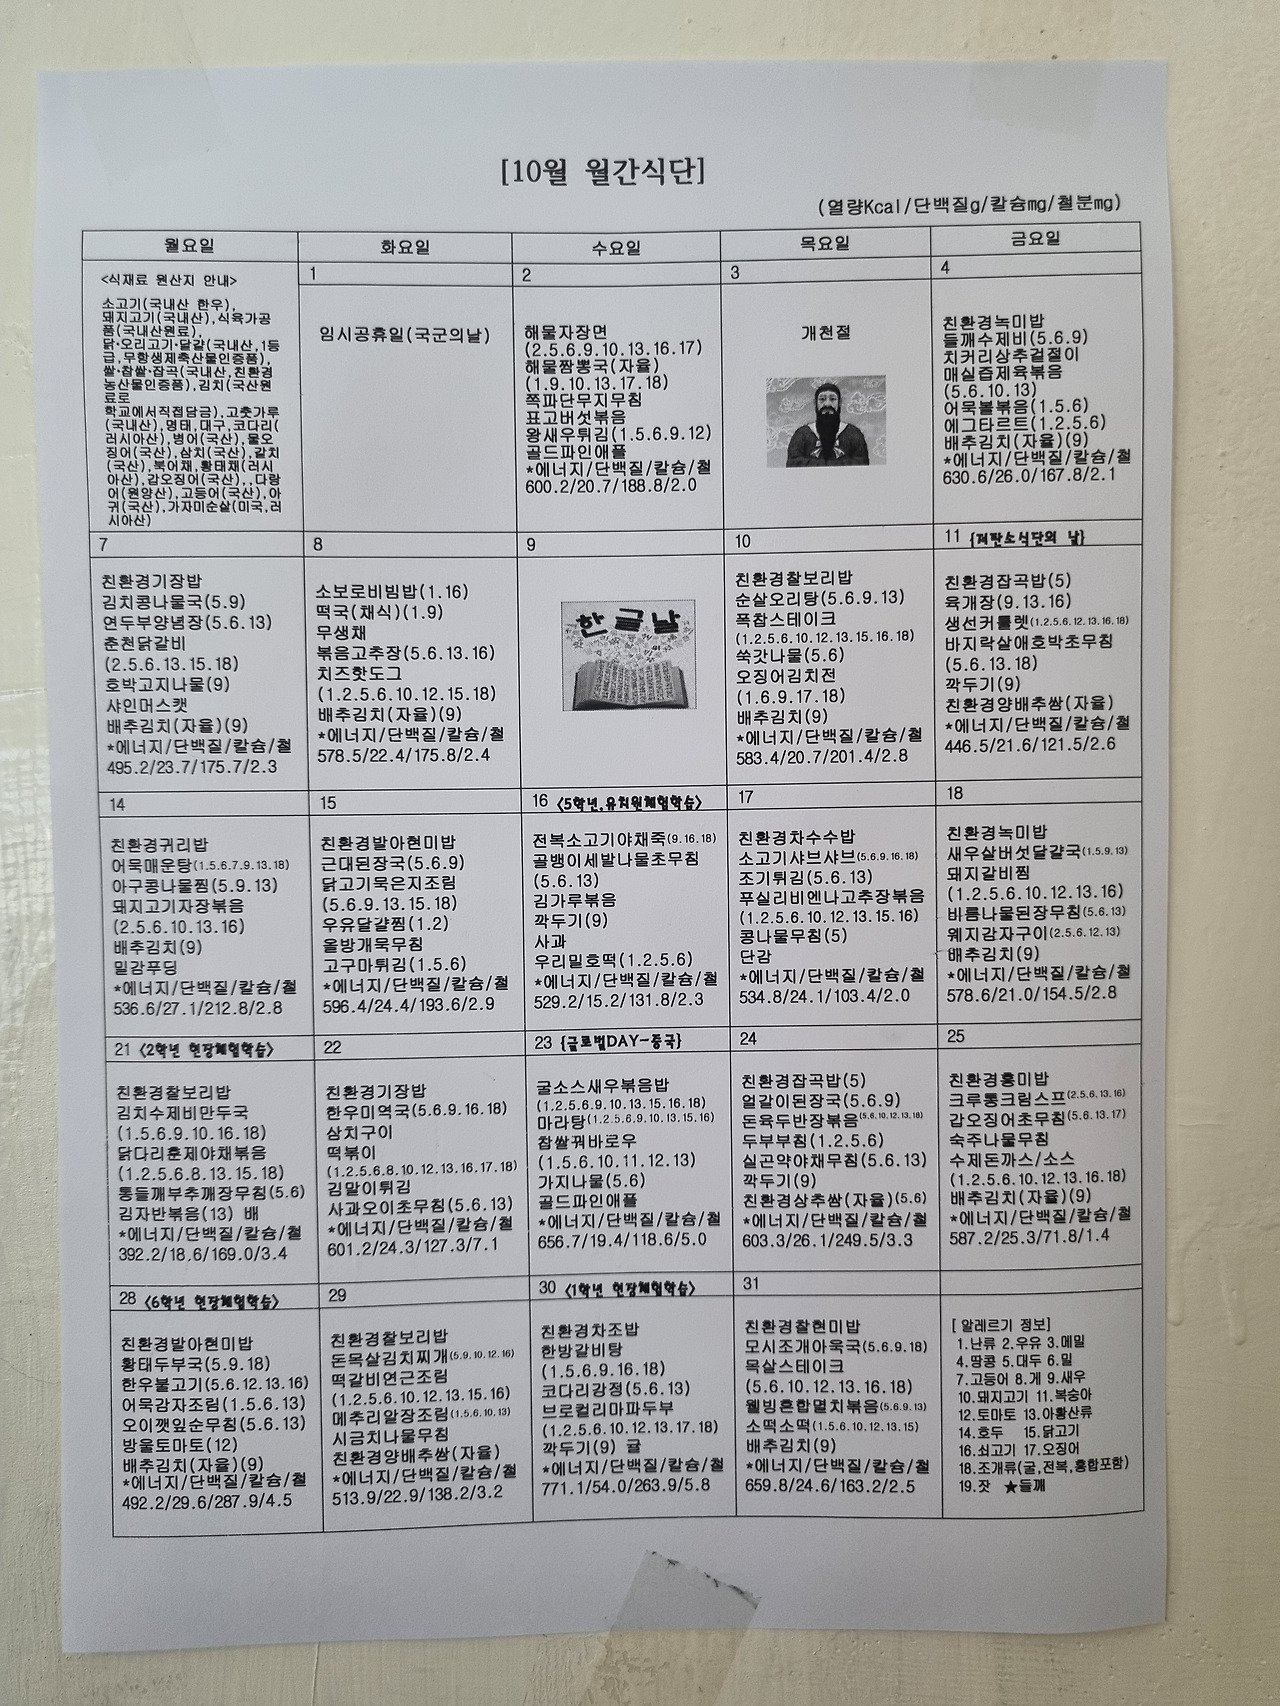 [10월 월간식단]
(열량Kcal/단백질g/칼슘mg/철분mg)
월요일
화요일
수요일
목요일
금요일
<식재료 원산지 안내>
소고기(국내산 한우),
돼지고기(국내산),식육가공
품(국내산원료),
닭·오리고기·달걀(국내산,1등
급,무항생제축산물인증품),
쌀·찹쌀·잡곡(국내산,친환경
농산물인증품),김치(국산원
료로
학교에서직접담금),고춧가루
(국내산),명태,대구,코다리(
러시아산),병어(국산),물오
징어(국산),삼치(국산),갈치
(국산),북어채,황태채(러시
아산),갑오징어(국산),.다랑
어(원양산),고등어(국산),아
귀(국산),가자미순살(미국,러
시아산)
1
임시공휴일(국군의날)
2
해물자장면
(2.5.6.9.10.13.16.17)
해물짬뽕국(자율)
(1.9.10.13.17.18)
쪽파단무지무침
표고버섯볶음
왕새우튀김(1.5.6.9.12)
골드파인애플
*에너지/단백질/칼슘/철
600.2/20.7/188.8/2.0
3
개천절
4
친환경녹미밥
들깨수제비(5.6.9)
치커리상추겉절이
매실즙제육볶음
(5.6.10.13)
어묵볼볶음(1.5.6)
에그타르트(1.2.5.6)
배추김치(자율)(9)
*에너지/단백질/칼슘/철
630.6/26.0/167.8/2.1
7
친환경기장밥
김치콩나물국(5.9)
연두부양념장(5.6.13)
춘천닭갈비
(2.5.6.13.15.18)
호박고지나물(9)
샤인머스캣
배추김치(자율)(9)
*에너지/단백질/칼슘/철
495.2/23.7/175.7/2.3
8
소보로비빔밥(1.16)
떡국(채식)(1.9)
무생채
볶음고추장(5.6.13.16)
치즈핫도그
(1.2.5.6.10.12.15.18)
배추김치(자율)(9)
*에너지/단백질/칼슘/철
578.5/22.4/175.8/2.4
9
한글날
10
친환경찰보리밥
순살오리탕(5.6.9.13)
폭찹스테이크
(1.2.5.6.10.12.13.15.16.18)
쑥갓나물(5.6)
오징어김치전
(1.6.9.17.18)
배추김치(9)
*에너지/단백질/칼슘/철
583.4/20.7/201.4/2.8
11 {저탄소식단의 날}
친환경잡곡밥(5)
육개장(9.13.16)
생선커틀렛(1.2.5.6.12.13.16.18)
바지락살애호박초무침
(5.6.13.18)
깍두기(9)
친환경양배추쌈(자율)
*에너지/단백질/칼슘/철
446.5/21.6/121.5/2.6
14
친환경귀리밥
어묵매운탕(1.5.6.7.9.13.18)
아구콩나물찜(5.9.13)
돼지고기자장볶음
(2.5.6.10.13.16)
배추김치(9)
밀감푸딩
*에너지/단백질/칼슘/철
536.6/27.1/212.8/2.8
15
친환경발아현미밥
근대된장국(5.6.9)
닭고기묵은지조림
(5.6.9.13.15.18)
우유달걀찜(1.2)
올방개묵무침
고구마튀김(1.5.6)
*에너지/단백질/칼슘/철
596.4/24.4/193.6/2.9
16 <5학년,유치원체험학습>
전복소고기야채죽(9.16.18)
골뱅이세발나물초무침
(5.6.13)
김가루볶음
깍두기(9)
사과
우리밀호떡(1.2.5.6)
*에너지/단백질/칼슘/철
529.2/15.2/131.8/2.3
17
친환경차수수밥
소고기샤브샤브(5.6.9.16.18)
조기튀김(5.6.13)
푸실리비엔나고추장볶음
(1.2.5.6.10.12.13.15.16)
콩나물무침(5)
단감
*에너지/단백질/칼슘/철
534.8/24.1/103.4/2.0
18
친환경녹미밥
새우살버섯달걀국(1.5.9.13)
돼지갈비찜
(1.2.5.6.10.12.13.16)
비름나물된장무침(5.6.13)
웨지감자구이(2.5.6.12.13)
배추김치(9)
*에너지/단백질/칼슘/철
578.6/21.0/154.5/2.8
21 <2학년 현장체험학습>
친환경찰보리밥
김치수제비만두국
(1.5.6.9.10.16.18)
닭다리훈제야채볶음
(1.2.5.6.8.13.15.18)
통들깨부추깨장무침(5.6)
김자반볶음(13) 배
*에너지/단백질/칼슘/철
392.2/18.6/169.0/3.4
22
친환경기장밥
한우미역국(5.6.9.16.18)
삼치구이
떡볶이
(1.2.5.6.8.10.12.13.16.17.18)
김말이튀김
사과오이초무침(5.6.13)
*에너지/단백질/칼슘/철
601.2/24.3/127.3/7.1
23 {글로벌DAY-중국}
굴소스새우볶음밥
(1.2.5.6.9.10.13.15.16.18)
마라탕(1.2.5.6.9.10.13.15.16)
찹쌀꿔바로우
(1.5.6.10.11.12.13)
가지나물(5.6)
골드파인애플
*에너지/단백질/칼슘/철
656.7/19.4/118.6/5.0
24
친환경잡곡밥(5)
얼갈이된장국(5.6.9)
돈육두반장볶음(5.6.10.12.13.18)
두부부침(1.2.5.6)
실곤약야채무침(5.6.13)
깍두기(9)
친환경상추쌈(자율)(5.6)
*에너지/단백질/칼슘/철
603.3/26.1/249.5/3.3
25
친환경홍미밥
크루통크림스프(2.5.6.13.16)
갑오징어초무침(5.6.13.17)
숙주나물무침
수제돈까스/소스
(1.2.5.6.10.12.13.16.18)
배추김치(자율)(9)
*에너지/단백질/칼슘/철
587.2/25.3/71.8/1.4
28 <6학년 현장체험학습>
친환경발아현미밥
황태두부국(5.9.18)
한우불고기(5.6.12.13.16)
어묵감자조림(1.5.6.13)
오이깻잎순무침(5.6.13)
방울토마토(12)
배추김치(자율)(9)
*에너지/단백질/칼슘/철
492.2/29.6/287.9/4.5
29
친환경찰보리밥
돈목살김치찌개(5.9.10.12.16)
떡갈비연근조림
(1.2.5.6.10.12.13.15.16)
메추리알장조림(1.5.6.10.13)
시금치나물무침
친환경양배추쌈(자율)
*에너지/단백질/칼슘/철
513.9/22.9/138.2/3.2
30 <1학년 현장체험학습>
친환경차조밥
한방갈비탕
(1.5.6.9.16.18)
코다리강정(5.6.13)
브로컬리마파두부
(1.2.5.6.10.12.13.17.18)
깍두기(9) 귤
*에너지/단백질/칼슘/철
771.1/54.0/263.9/5.8
31
친환경찰현미밥
모시조개아욱국(5.6.9.18)
목살스테이크
(5.6.10.12.13.16.18)
웰빙혼합멸치볶음(5.6.9.13)
소떡소떡(1.5.6.10.12.13.15)
배추김치(9)
*에너지/단백질/칼슘/철
659.8/24.6/163.2/2.5
[ 알레르기 정보]
1.난류 2.우유 3.메밀
4.땅콩 5.대두 6.밀
7.고등어 8.게 9.새우
10.돼지고기 11.복숭아
12.토마토 13.아황산류
14.호두 15.닭고기
16.쇠고기 17.오징어
18.조개류(굴,전복,홍합포함)
19.잣 ★들깨